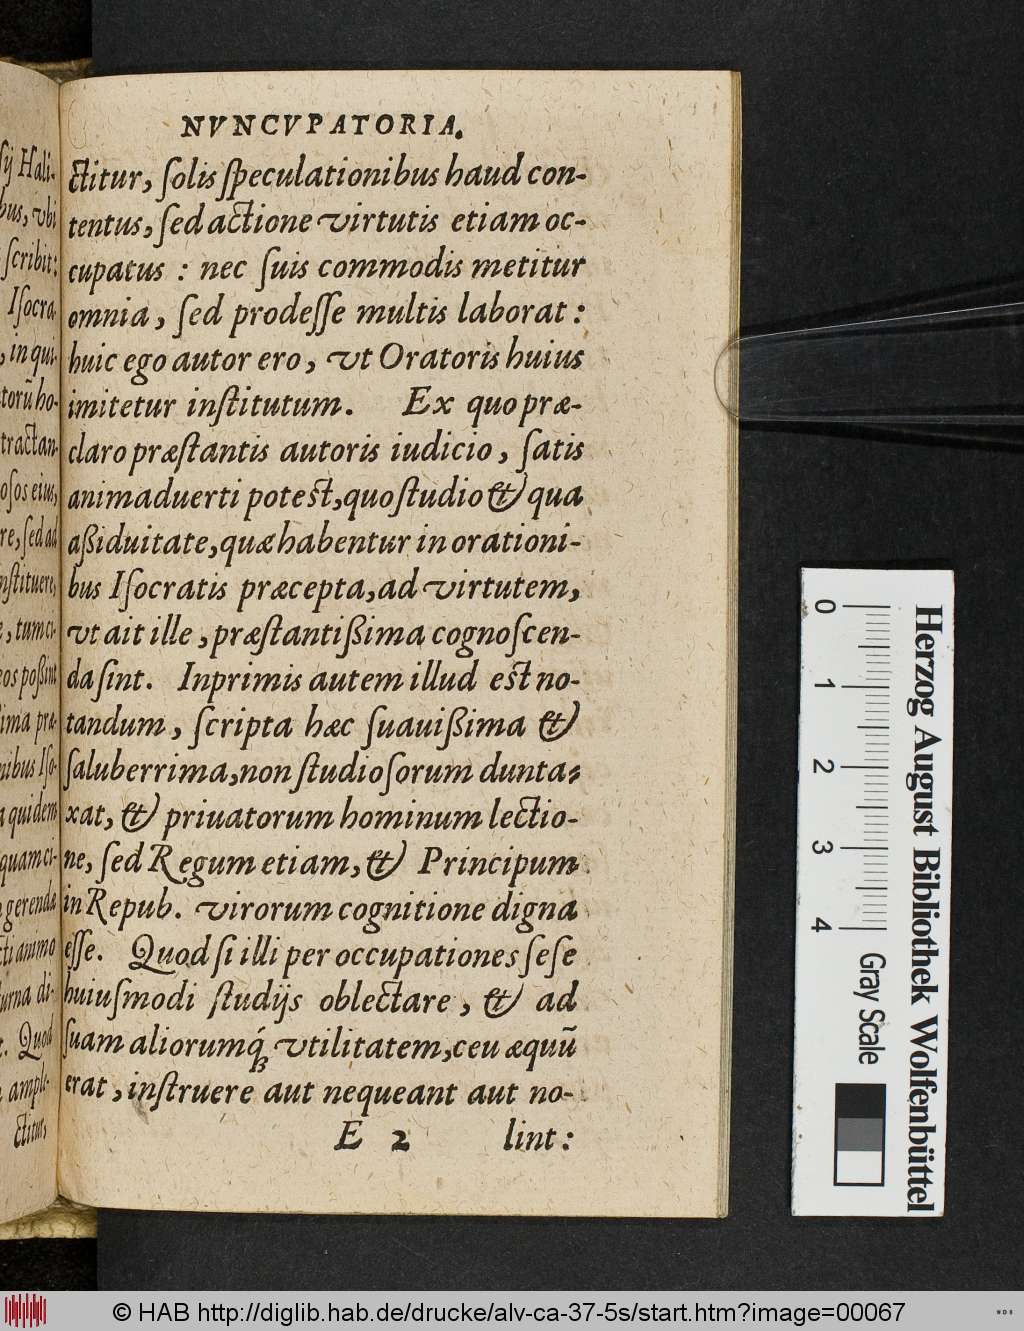 NVNCVPATORIA.
ctitur, ſolis ſpeculationibus haud con-
tentus, ſed actione virtutis etiam oc-
cupatus : nec ſuis commodis metitur
omnia, ſed prodeſſe multis laborat :
huic ego autor ero, vt Oratoris huius
imitetur inſtitutum. Ex quo præ-
claro præſtantis autoris iudicio, ſatis
animaduerti poteſt, quo ſtudio & qua
aßiduitate, quæ habentur in orationi-
bus Iſocratis præcepta, ad virtutem,
vt ait ille, præſtantißima cognoſcen-
da ſint. Inprimis autem illud eſt no-
tandum, ſcripta hæc ſuauißima &
ſaluberrima, non ſtudioſorum dunta-
xat, & priuatorum hominum lectio-
ne, ſed Regum etiam, & Principum
in Repub. virorum cognitione digna
eſſe. Quod ſi illi per occupationes ſeſe
huiuſmodi ſtudijs oblectare, & ad
ſuam aliorumq́; vtilitatem, ceu æquũ
erat, inſtruere aut nequeant aut no-
E 2 lint :
ſij Hali-
bus, vbi
ſcribit:
Iſocra-
, in qui-
torũ ho-
tractan-
oſos eius,
re, ſed ad
nſtituere,
, tum ci-
eos poßint
ſima præ-
nibus Iſo-
a quidem
quam ci-
gerenda
cti animo
urna di-
. Quod
ample-
ctitur,
Herzog August Bibliothek Wolfenbüttel
0 1 2 3 4
Gray Scale
© HAB http://diglib.hab.de/drucke/alv-ca-37-5s/start.htm?image=00067